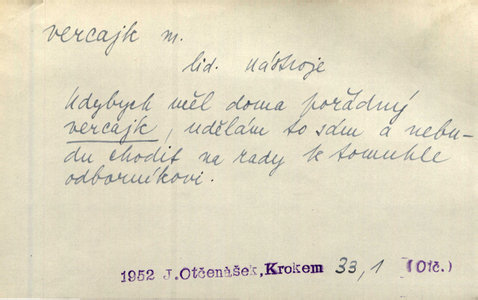 vercajk m.
lid. nástroje
Kdybych měl doma pořádný
vercajk, udělám to sám a nebu-
du chodit na rady k tomuhle
odborníkovi.
1952 J.Otčenášek,Krokem 33,1 (Otč.)